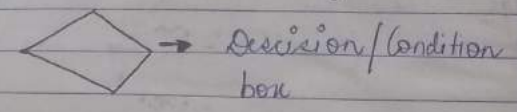 Descision/Condition
box